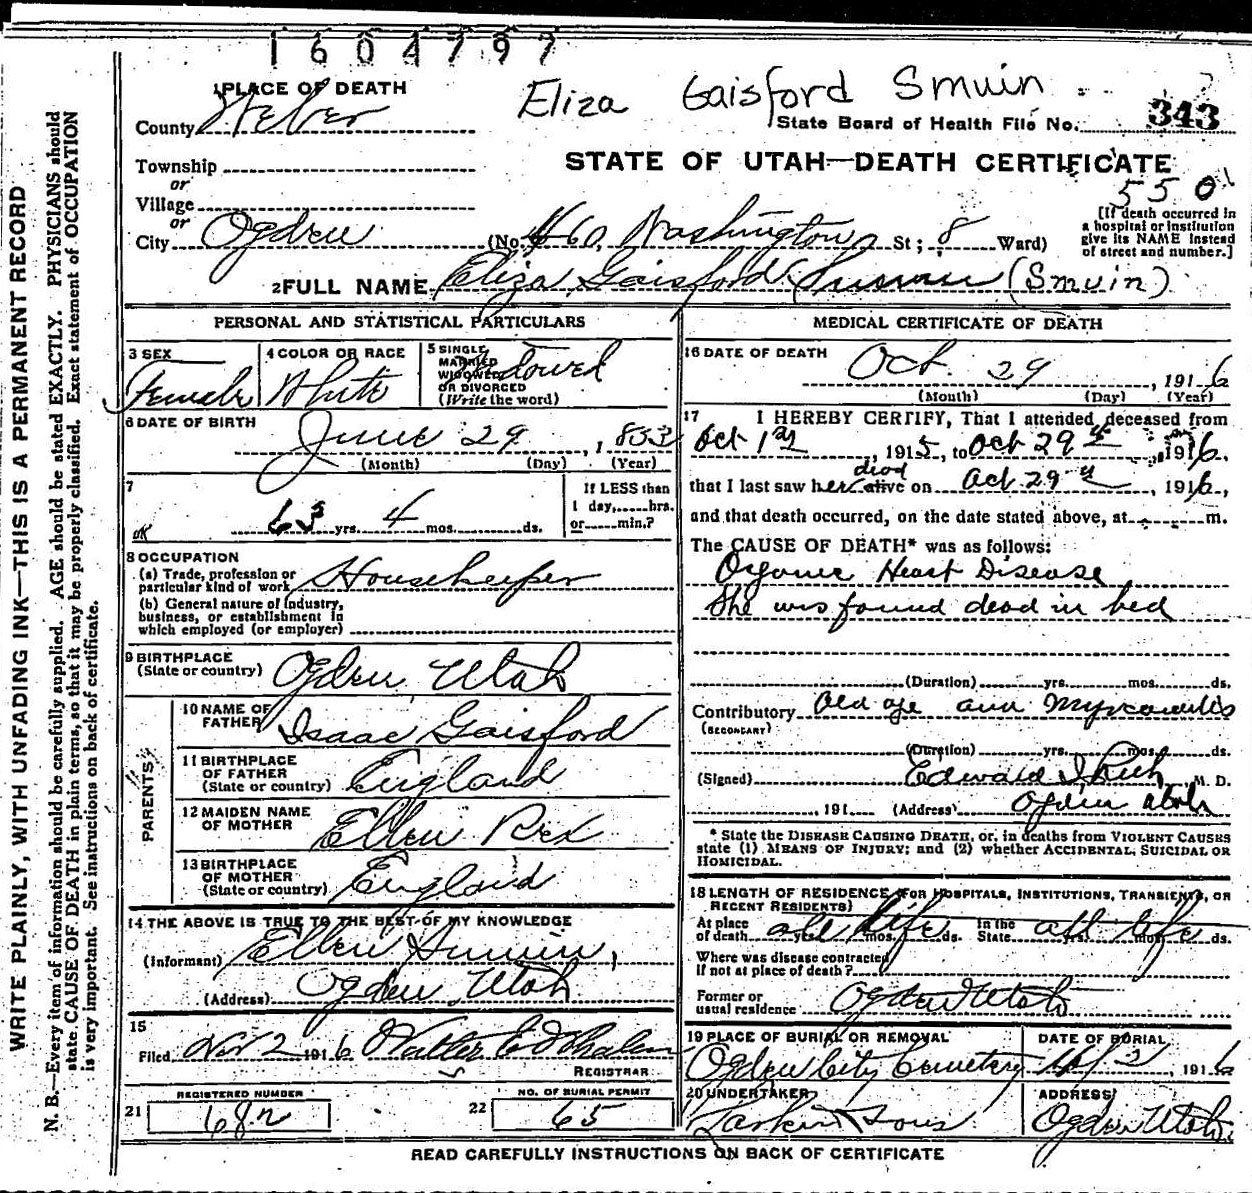 1604797
1 PLACE OF DEATH
Eliza Gaisford Smuin
County Weber
State Board of Health File No. 343
Township
STATE OF UTAH—DEATH CERTIFICATE
or
550
Village
or
City Ogden (No. 460 Washington St; 8 Ward)
[If death occurred in
a hospital or institution
give its NAME instead
of street and number.]
2 FULL NAME Eliza Gaisford (Smuin)
PERSONAL AND STATISTICAL PARTICULARS
3 SEX
Female
4 COLOR OR RACE
White
5 SINGLE,
MARRIED
WIDOWED,
OR DIVORCED
(Write the word)
Widowed
6 DATE OF BIRTH
June 29, 1853
(Month) (Day) (Year)
7
63 yrs. 4 mos. ds.
If LESS than
1 day, hrs.
or min.?
OK
8 OCCUPATION
(a) Trade, profession or
particular kind of work Housekeeper
(b) General nature of industry,
business, or establishment in
which employed (or employer)
9 BIRTHPLACE
(State or country) Ogden, Utah
PARENTS
10 NAME OF
FATHER Isaac Gaisford
11 BIRTHPLACE
OF FATHER
(State or country) England
12 MAIDEN NAME
OF MOTHER Ellen Rex
13 BIRTHPLACE
OF MOTHER
(State or country) England
14 THE ABOVE IS TRUE TO THE BEST OF MY KNOWLEDGE
(Informant) Ellen Smuin,
(Address) Ogden, Utah
15
Filed Nov 2 1916 Walter E Whalen
REGISTRAR
REGISTERED NUMBER
21 682
NO. OF BURIAL PERMIT
22 65
MEDICAL CERTIFICATE OF DEATH
16 DATE OF DEATH
Oct 29, 1916
(Month) (Day) (Year)
17 I HEREBY CERTIFY, That I attended deceased from
Oct 1st, 1915, to Oct 29th, 1916,
dead
that I last saw her alive on Oct 29th, 1916,
and that death occurred, on the date stated above, at m.
The CAUSE OF DEATH* was as follows:
Organic Heart Disease
She was found dead in bed
(Duration) yrs. mos. ds.
Contributory Old age and Myocarditis
(SECONDARY)
(Duration) yrs. mos. ds.
(Signed) Edward I Rich M. D.
, 191 (Address) Ogden Utah
* State the DISEASE CAUSING DEATH, or, in deaths from VIOLENT CAUSES
state (1) MEANS OF INJURY; and (2) whether ACCIDENTAL, SUICIDAL OR
HOMICIDAL.
18 LENGTH OF RESIDENCE (FOR HOSPITALS, INSTITUTIONS, TRANSIENTS, OR
RECENT RESIDENTS)
At place
of death all life yrs. mos. ds. In the
State all life yrs. mos. ds.
Where was disease contracted
if not at place of death?
Former or
usual residence Ogden Utah
19 PLACE OF BURIAL OR REMOVAL
Ogden City Cemetery
DATE OF BURIAL
11/2, 1916
20 UNDERTAKER
Larkin & Sons
ADDRESS
Ogden Utah.
READ CAREFULLY INSTRUCTIONS ON BACK OF CERTIFICATE
WRITE PLAINLY, WITH UNFADING INK—THIS IS A PERMANENT RECORD
N. B.—Every item of information should be carefully supplied. AGE should be stated EXACTLY. PHYSICIANS should
state CAUSE OF DEATH in plain terms, so that it may be properly classified. Exact statement of OCCUPATION
is very important. See instructions on back of certificate.